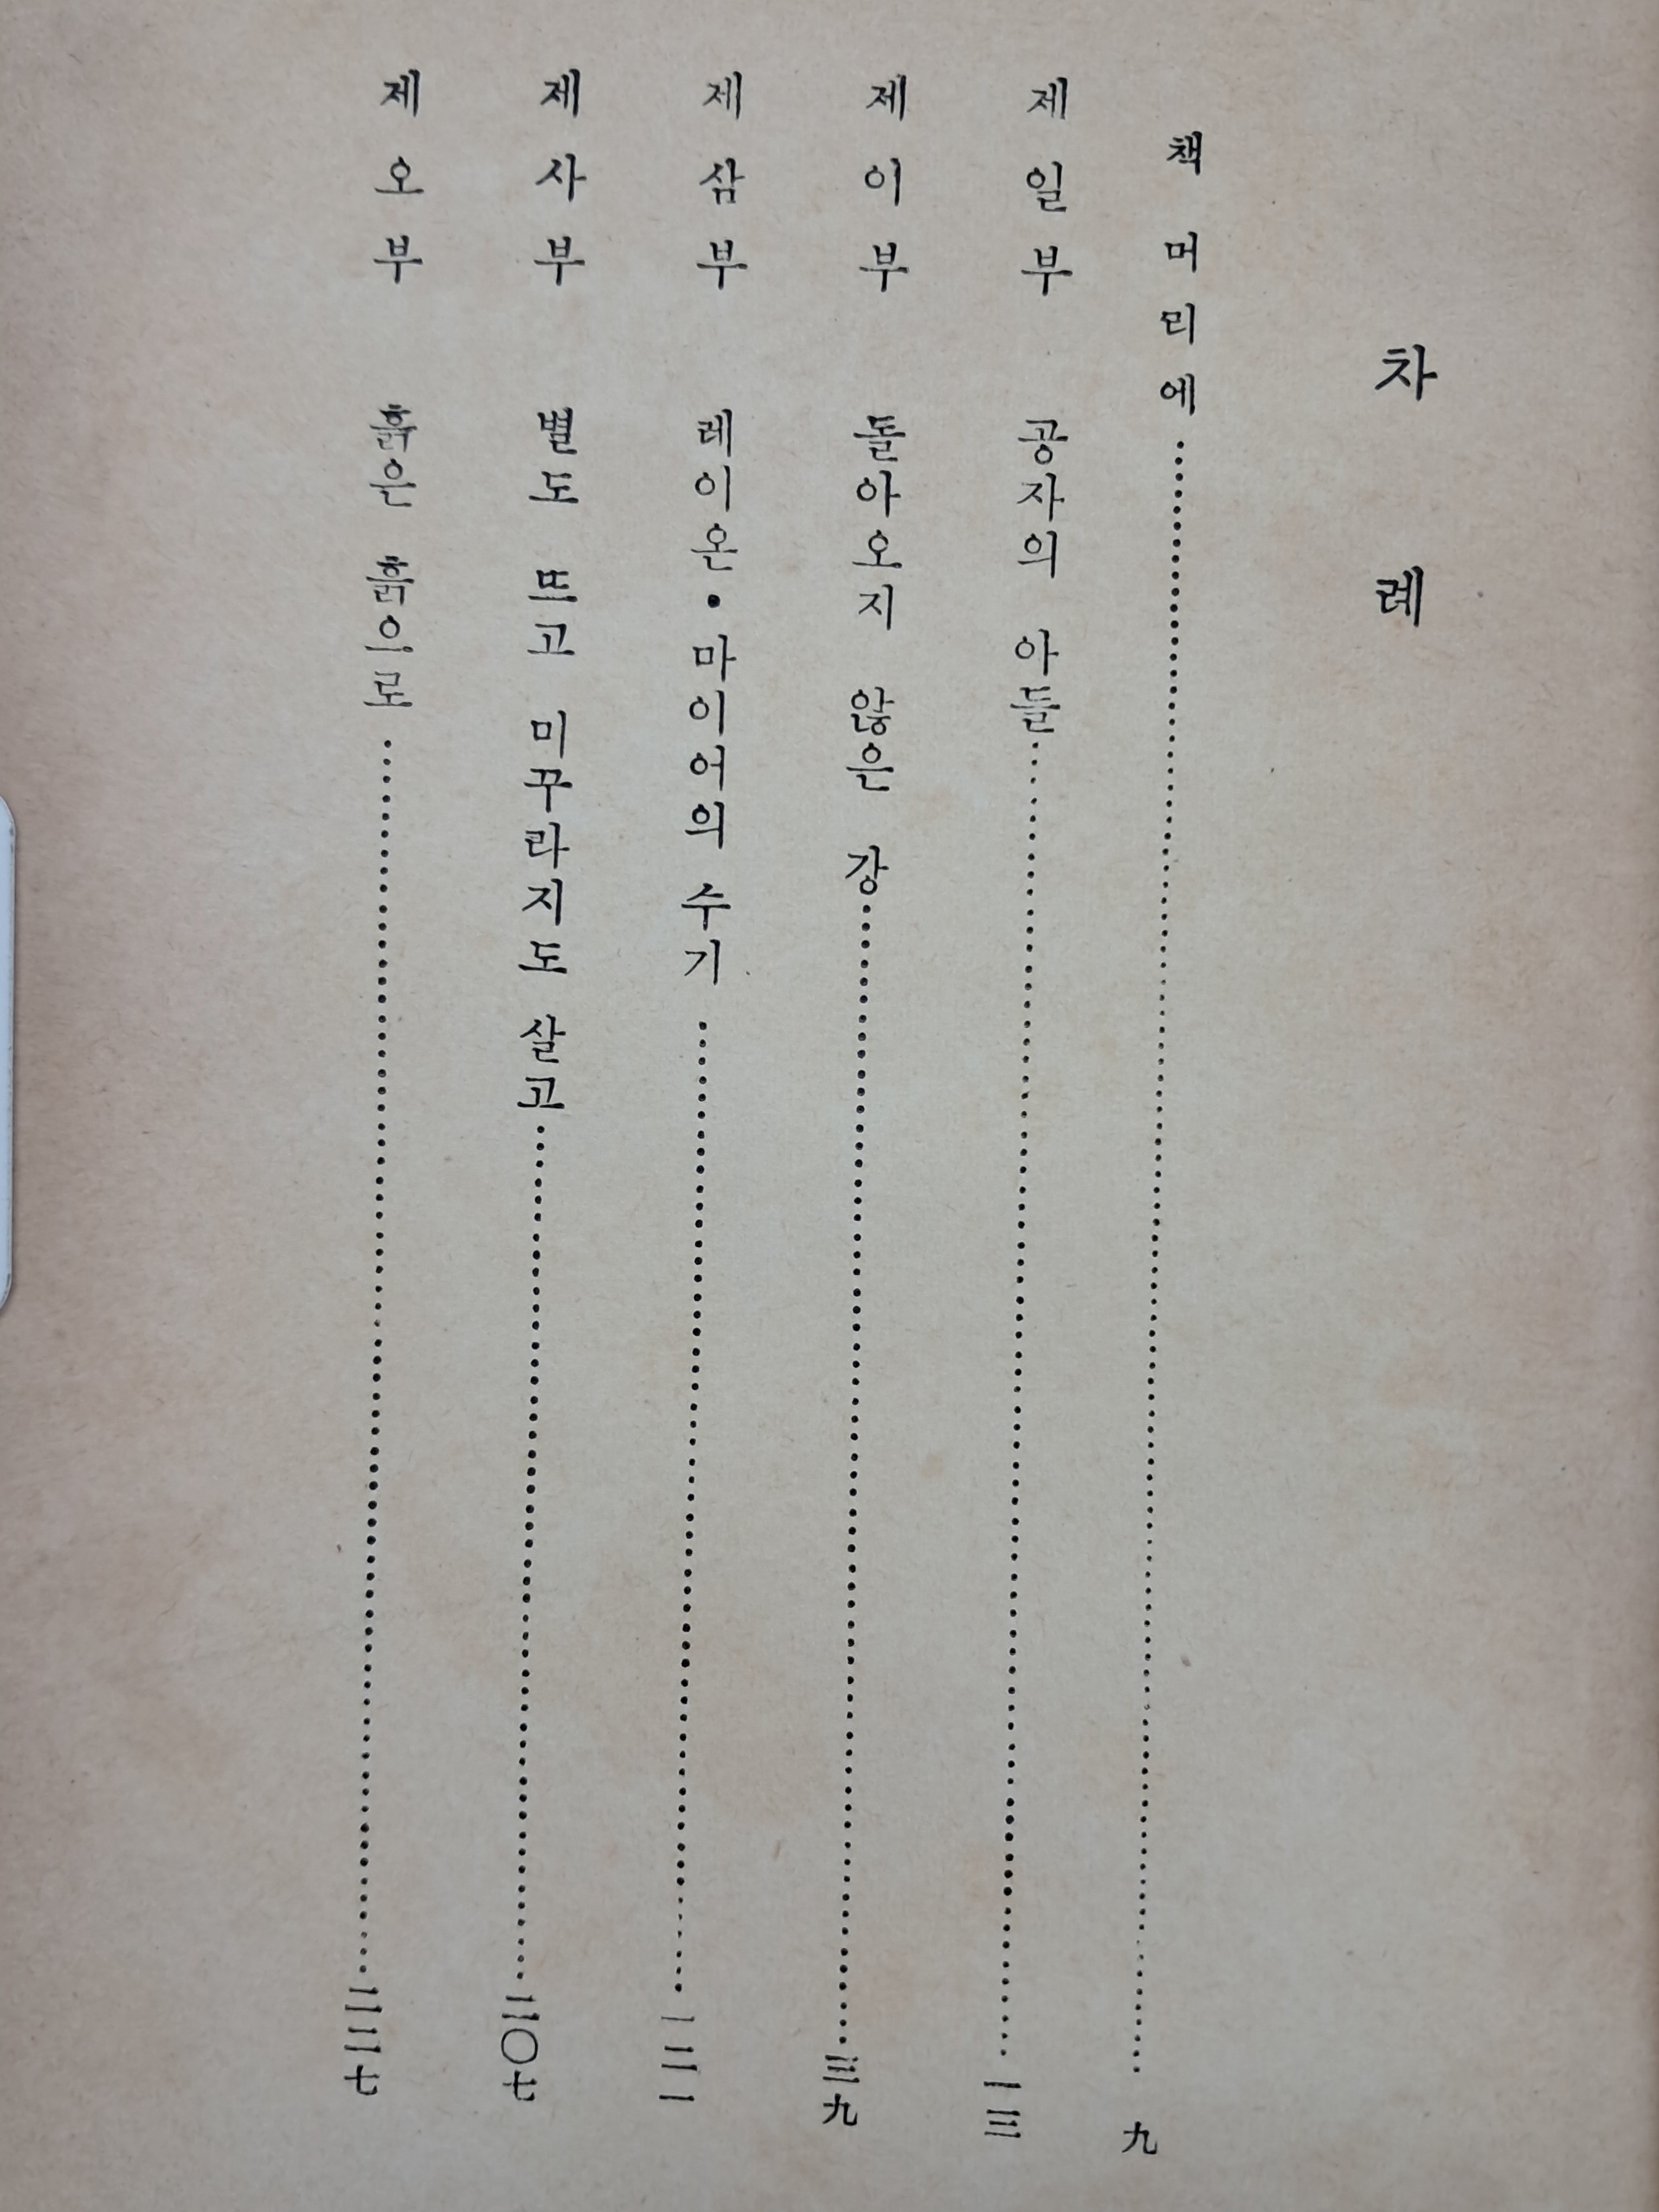 차 례
책 머리에……九
제일부 공자의 아들……一三
제이부 돌아오지 않은 강……三九
제삼부 레이온•마이어의 수기……一二一
제사부 별도 뜨고 미꾸라지도 살고……二〇七
제오부 흙은 흙으로……二二七